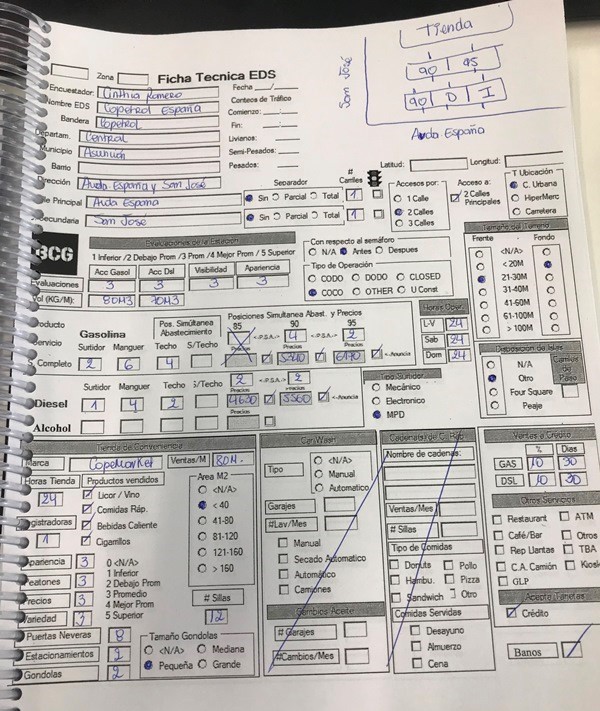 Tienda
90 95
90 D I
San José
Avda España
Zona
Ficha Tecnica EDS
Encuestador: Cinthia Romero
Nombre EDS Copetrol España
Bandera Copetrol
Departam. Central
Municipio Asunción
Barrio
Dirección Avda España y San José
Calle Principal Avda España
Secundaria San José
Fecha ___/___
Conteos de Tráfico
Comienzo:
Fin:
Livianos:
Semi-Pesados:
Pesados:
Latitud: Longitud:
Separador # Carriles
Sin Parcial Total 1
Sin Parcial Total 1
Accesos por:
1 Calle
2 Calles
3 Calles
Acceso a:
2 Calles Principales
T Ubicación
C. Urbana
HiperMerc
Carretera
BCG
Evaluaciones de la Estación
1 Inferior /2 Debajo Prom /3 Prom /4 Mejor Prom / 5 Superior
Acc Gasol Acc Dsl Visibilidad Apariencia
Evaluaciones 3 3 3 3
Vol (KG/M): 80M3 70M3
Con respecto al semáforo
N/A Antes Despues
Tipo de Operación
CODO DODO CLOSED
COCO OTHER U Const
Tamaño del Terreno
Frente Fondo
<N/A>
< 20M
21-30M
31-40M
41-60M
61-100M
> 100M
Producto Gasolina
Servicio
Pos. Simúltanea Abastecimiento
Posiciones Simultanea Abast. y Precios
85 90 95
<-P.S.A.-> 4 <-P.S.A.-> 2
Surtidor Manguer Techo S/Techo Precios Precios Precios
S. Completo 2 6 4 5240 6170 <-Anuncia
Horas Oper.
L-V 24
Sab 24
Dom 24
Surtidor Manguer Techo S/Techo 2 <-P.S.A.-> 2
Diesel 1 4 2 4630 5560 <-Anuncia
Precios
Alcohol
Tipo Surtidor
Mecánico
Electronico
MPD
Disposicion de Islas
N/A
Otro
Four Square
Peaje
Camiles de Paso
Tienda de Conveniencia
Marca CopeMarket Ventas/M 80M.
Horas Tienda 24
Productos vendidos
Licor / Vino
Comidas Ráp.
Bebidas Caliente
Cigarrillos
Registradoras 1
Area M2
<N/A>
< 40
41-80
81-120
121-160
> 160
Apariencia 3
Peatones 3
Precios 3
Variedad 3
0 <N/A>
1 Inferior
2 Debajo Prom
3 Promedio
4 Mejor Prom
5 Superior
# Sillas
12
Puertas Neveras 8
Estacionamientos 2
Gondolas 2
Tamaño Gondolas
<N/A> Mediana
Pequeña Grande
CarWash
Tipo
<N/A>
Manual
Automatico
Garajes
#Lav/Mes
Manual
Secado Automatico
Automático
Camiones
Cambios Aceite
# Garajes
#Cambios/Mes
Cadena/s de C. Ráp.
Nombre de cadena:
Ventas/Mes
# Sillas
Tipo de Comidas
Donuts Pollo
Hambu. Pizza
Sandwich Otro
Comidas Servidas
Desayuno
Almuerzo
Cena
Ventas a Crédito
% Dias
GAS 10 30
DSL 10 30
Otros Servicios
Restaurant ATM
Café/Bar Otros
Rep Llantas TBA
C.A. Camión Kiosk
GLP
Acepta Tarjetas
Crédito
Banos